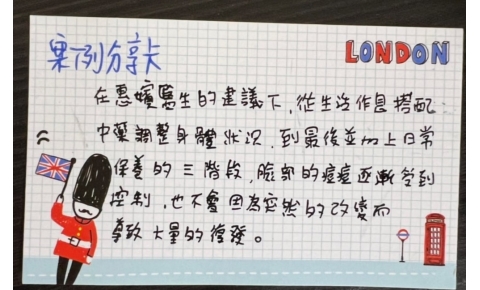 案例分享卡
LONDON
在惠嬪醫生的建議下,從生活作息搭配
中藥調整身體狀況,到最後並加上日常
保養的三階段,臉部的痘痘逐漸受到
控制,也不會因為突然的改變而
導致大量的復發。